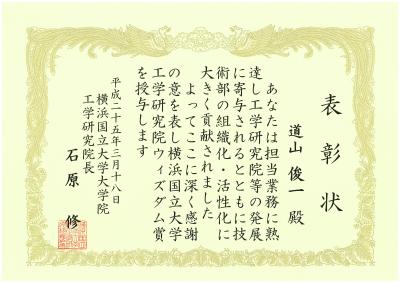 表彰状
道山俊一 殿
あなたは担当業務に熟
達し工学研究院等の発展
に寄与されるとともに技
術部の組織化・活性化に
大きく貢献されました
よってここに深く感謝
の意を表し横浜国立大学
工学研究院ウィズダム賞
を授与します
平成二十五年三月十八日
横浜国立大学大学院
工学研究院長
石原 修